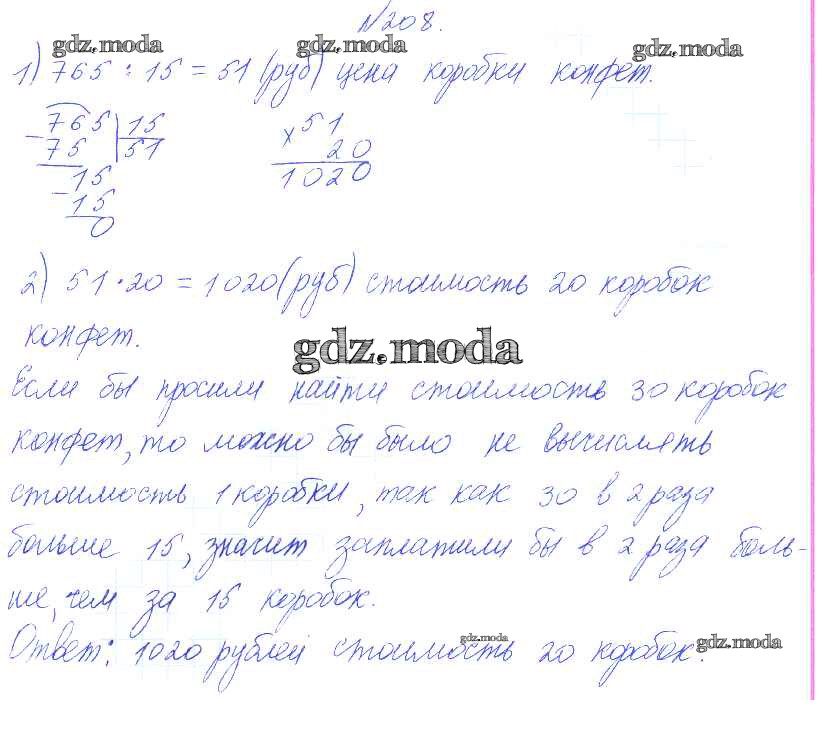 №208.
gdz.moda gdz.moda gdz.moda
1) 765 : 15 = 51 (руб) цена коробки конфет.
765 | 15
- 75 | 51
15
- 15
0
× 51
20
1020
2) 51 · 20 = 1020 (руб) стоимость 20 коробок
конфет.
gdz.moda
Если бы просили найти стоимость 30 коробок
конфет, то можно бы было не вычислять
стоимость 1 коробки, так как 30 в 2 раза
больше 15, значит заплатили бы в 2 раза боль-
ше, чем за 15 коробок.
gdz.moda gdz.moda
Ответ: 1020 рублей стоимость 20 коробок.